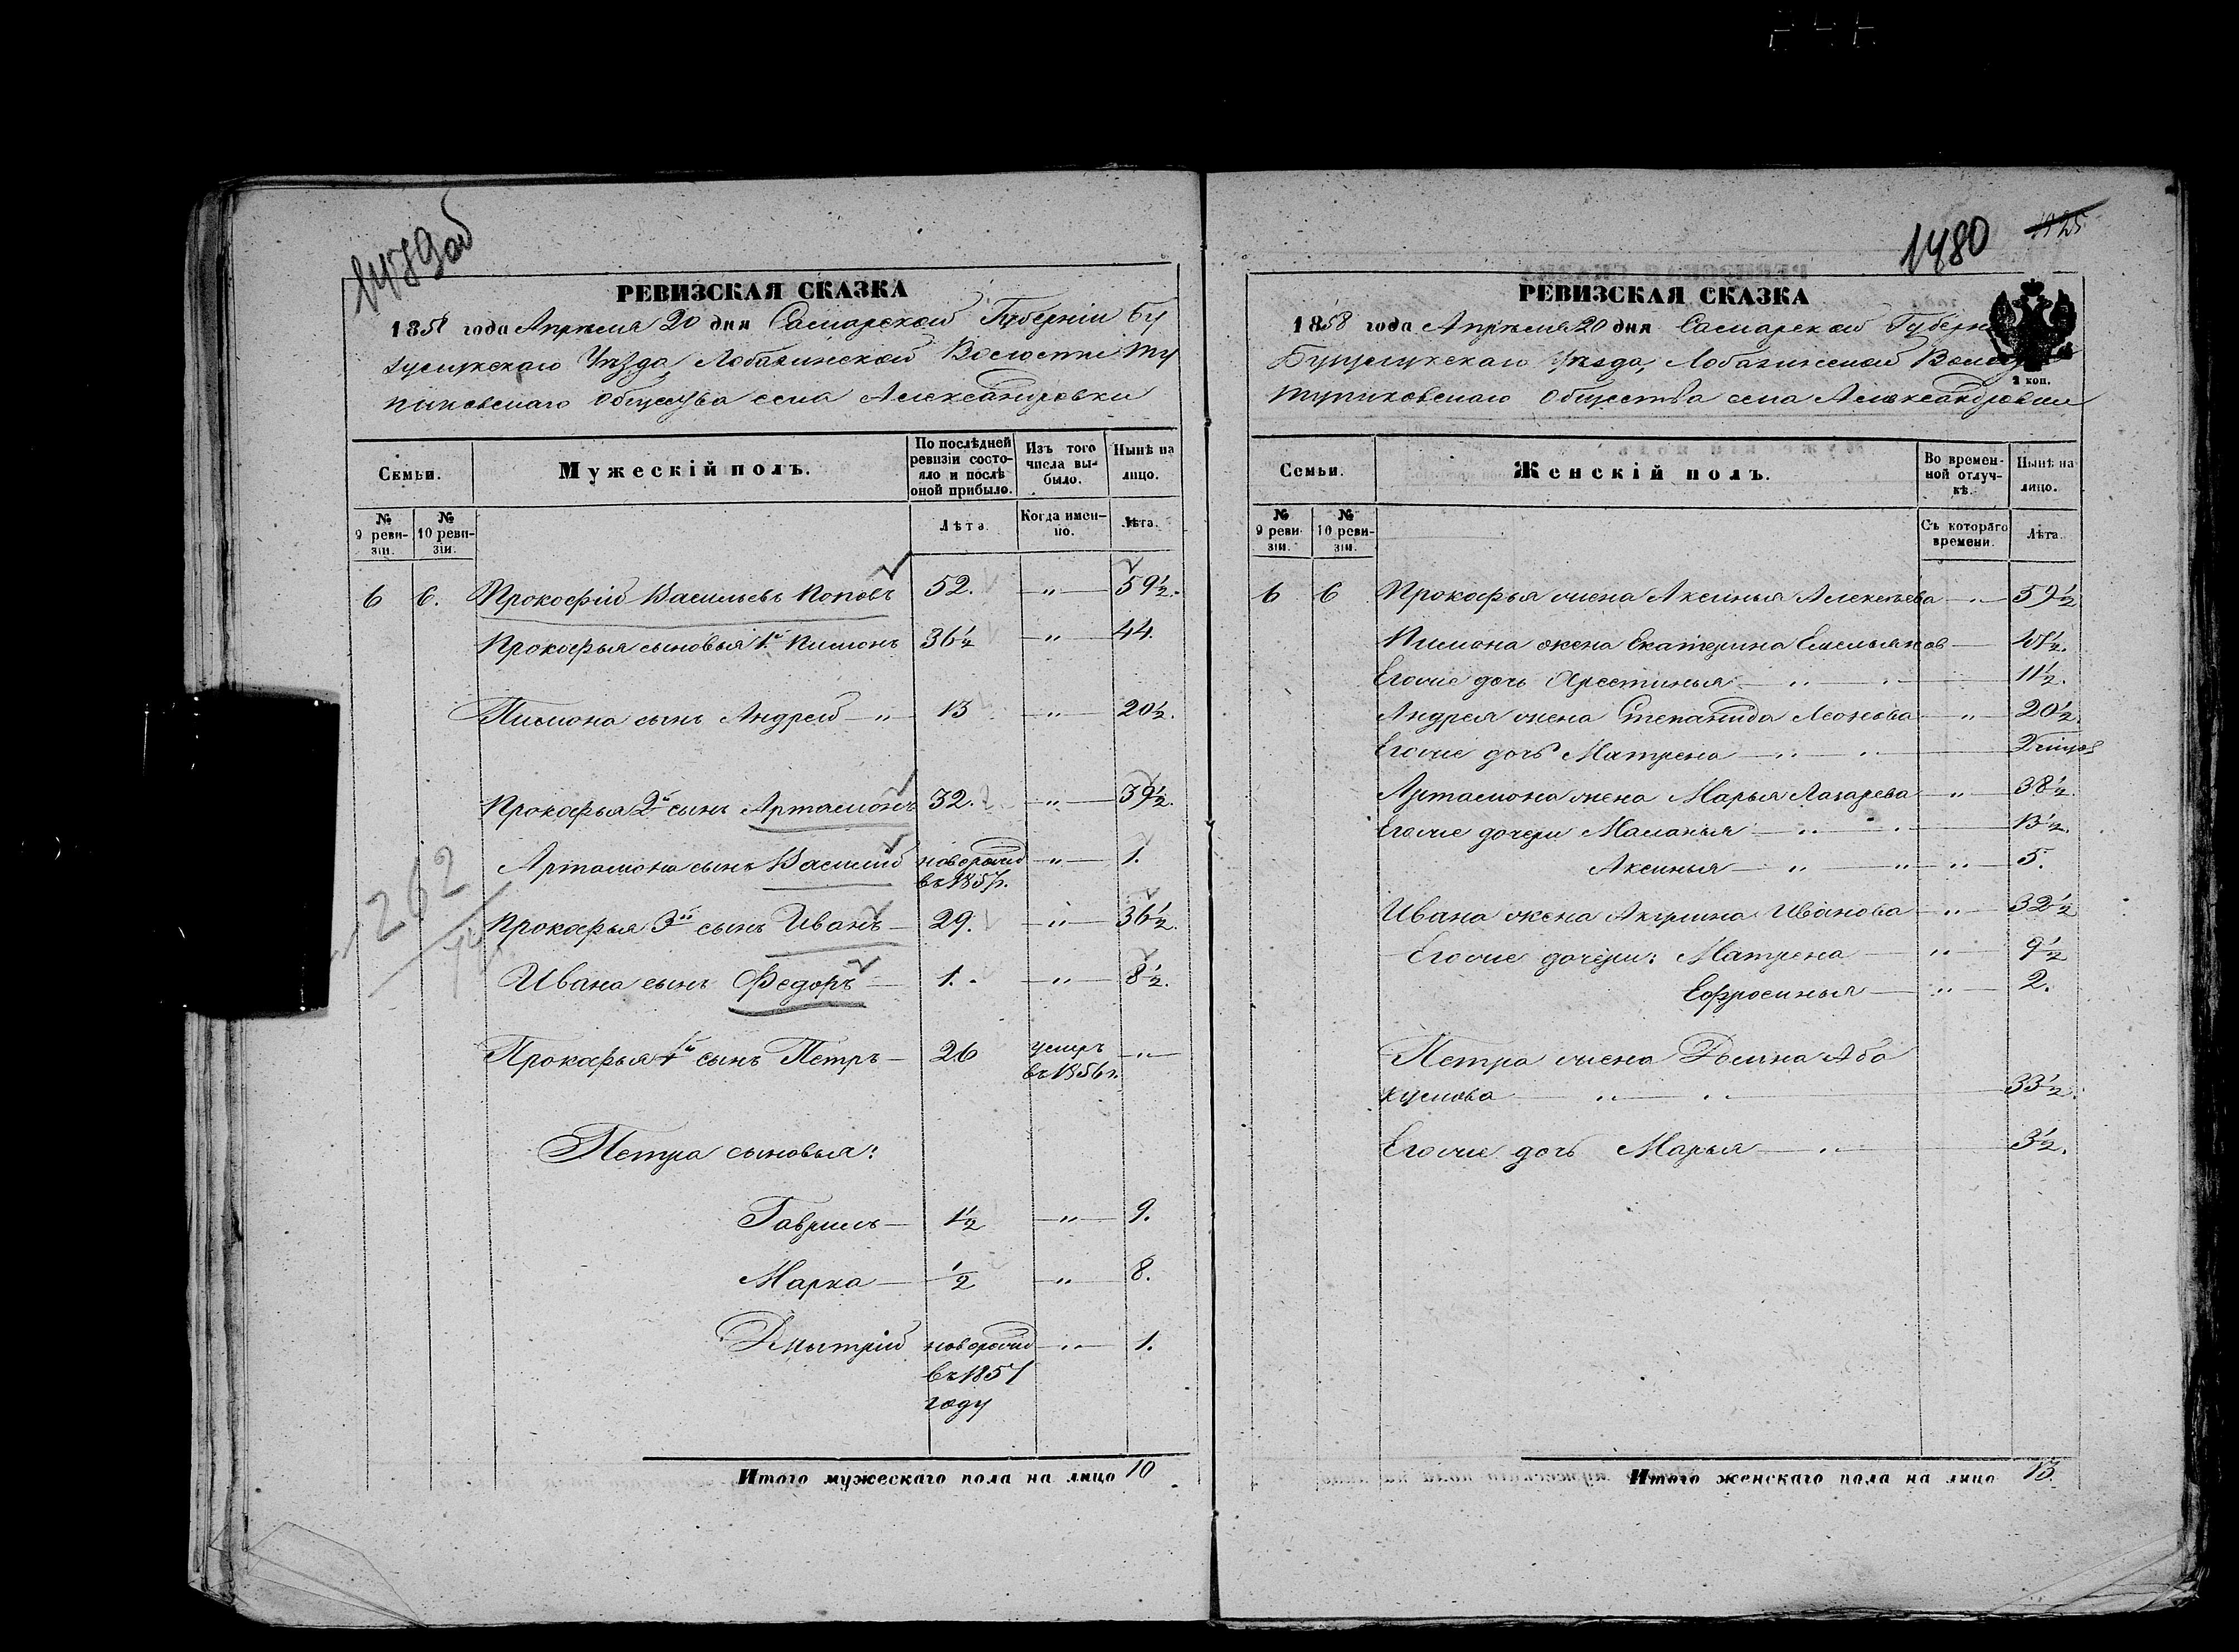 1479об
РЕВИЗСКАЯ СКАЗКА
1858 года Апреля 20 дня Самарской Губерніи Бу
гурускаго Уѣзда, Лобазинской Волости Ту
пиковскаго Общества села Александровки
Семьи.
Мужескій полъ.
По послѣдней ревизіи состояло и послѣ оной прибыло.
Изъ того числа выбыло.
Нынѣ на лицо.
№ 9 ревизіи.
№ 10 ревизіи.
Лѣта.
Когда именно.
Лѣта.
6 6. Прокофій Васильевъ Поповъ 52. — " — 59½.
Прокофья сыновья 1й Пимонъ 36½ — " — 44.
Пимона сынъ Андрей — " — 13 — " — 20½.
Прокофья 2й сынъ Артамонъ 32. — " — 39½.
Артамона сынъ Василій новорожд — " — 1.
въ 1857г.
Прокофья 3й сынъ Иванъ — 29. — " — 36½.
Ивана сынъ Федоръ — 1. — " — 8½.
Прокофья 4й сынъ Петръ — 26 умеръ — " —
въ 1856г.
Петра сыновья:
Гаврилъ — 1½ — " — 9.
Марка — ½ — " — 8.
Дмитрій новорожд — " — 1.
въ 1857
году
Итого мужескаго пола на лицо 10
262
1480
1125
РЕВИЗСКАЯ СКАЗКА
1858 года Апреля 20 дня Самарской Губерн
Уѣзда, Лобазинской
Тупиковскаго Общества села Александровки
2 коп.
Семьи.
Женскій полъ.
Во временной отлучкѣ.
Нынѣ на лицо.
№ 9 ревизіи.
№ 10 ревизіи.
Съ котораго времени.
Лѣта.
6 6 Прокофья жена Аксинья Алексѣева — " — 59½
Пимона жена Екатерина Емельянов — 47½.
Егоже дочь — " — 11½.
Андрея жена Степанида Леонова — " — 20½.
Егоже дочь Матрена — " — "
Артамона жена Марья Лазарева — " — 38½.
Егоже дочери Маланья — " — 13½.
Аксинья — " — " — " — 5.
Ивана жена Акулина Иванова — " — 32½
Егоже дочери: Матрена — " — 9½
Ефросинья — " — 2.
Петра жена Домна Аба
кумова — " — " — 33½.
Егоже дочь Марья — " — 3½.
Итого женскаго пола на лицо 13.